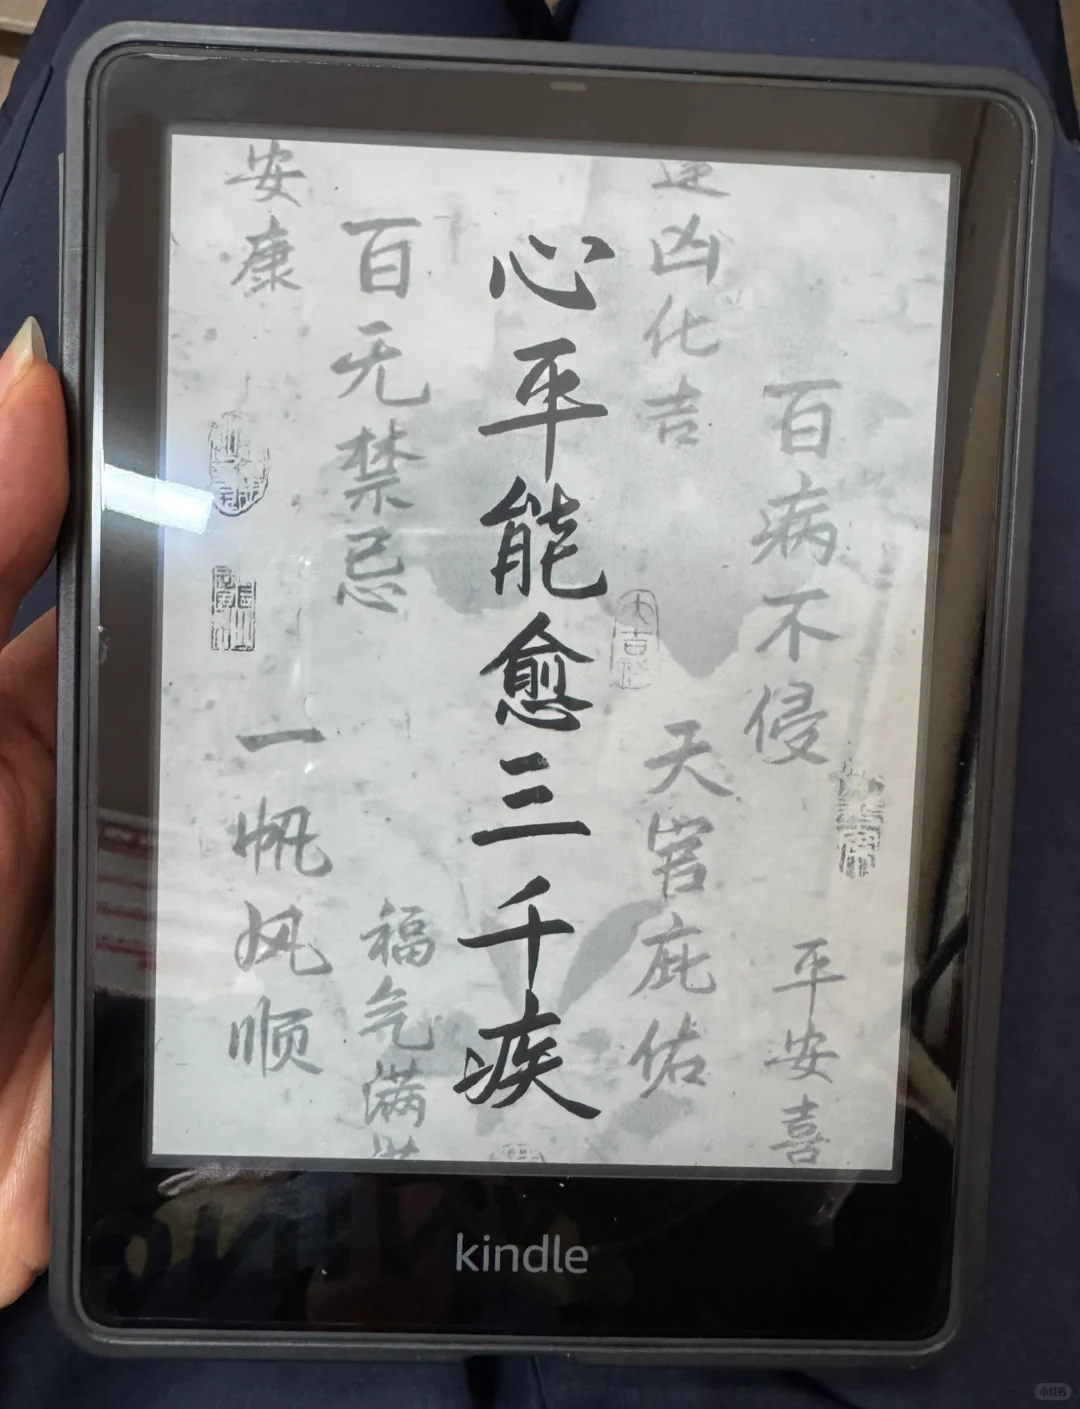 百病不侵
平安喜
凶化吉
天官庇佑
大吉
心平能愈三千疾
百无禁忌
福气满
安康
一帆风顺
kindle
小红书